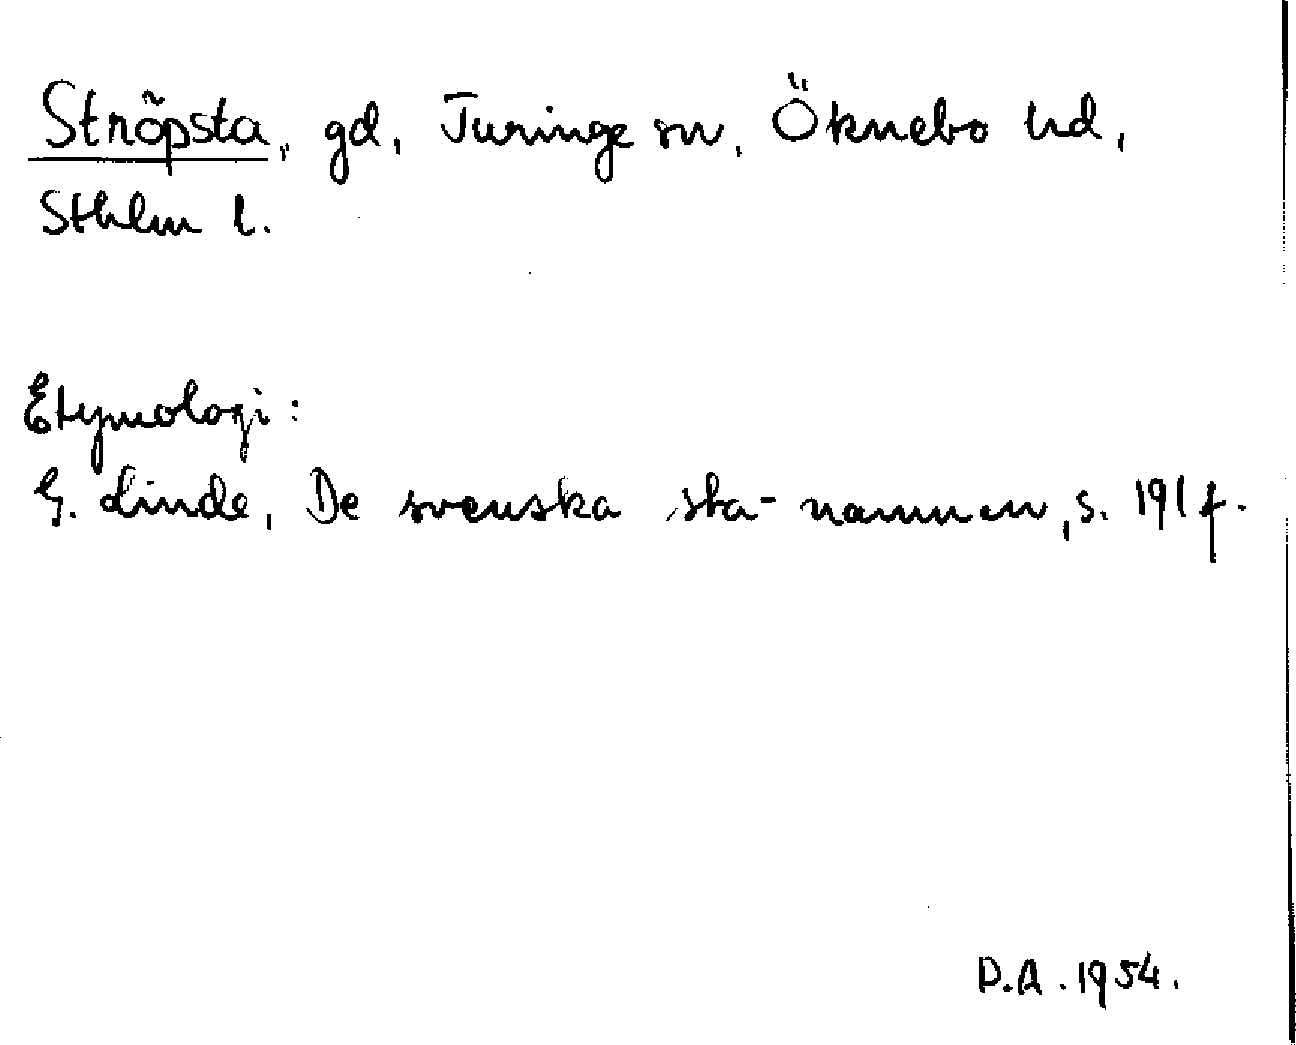 Ströpsta, gd, Turinge sn, Öknebo hd,
Sthlm l.
Etymologi:
G. Linde, De svenska sta-namnen, s. 191 f.
D.A. 1954.